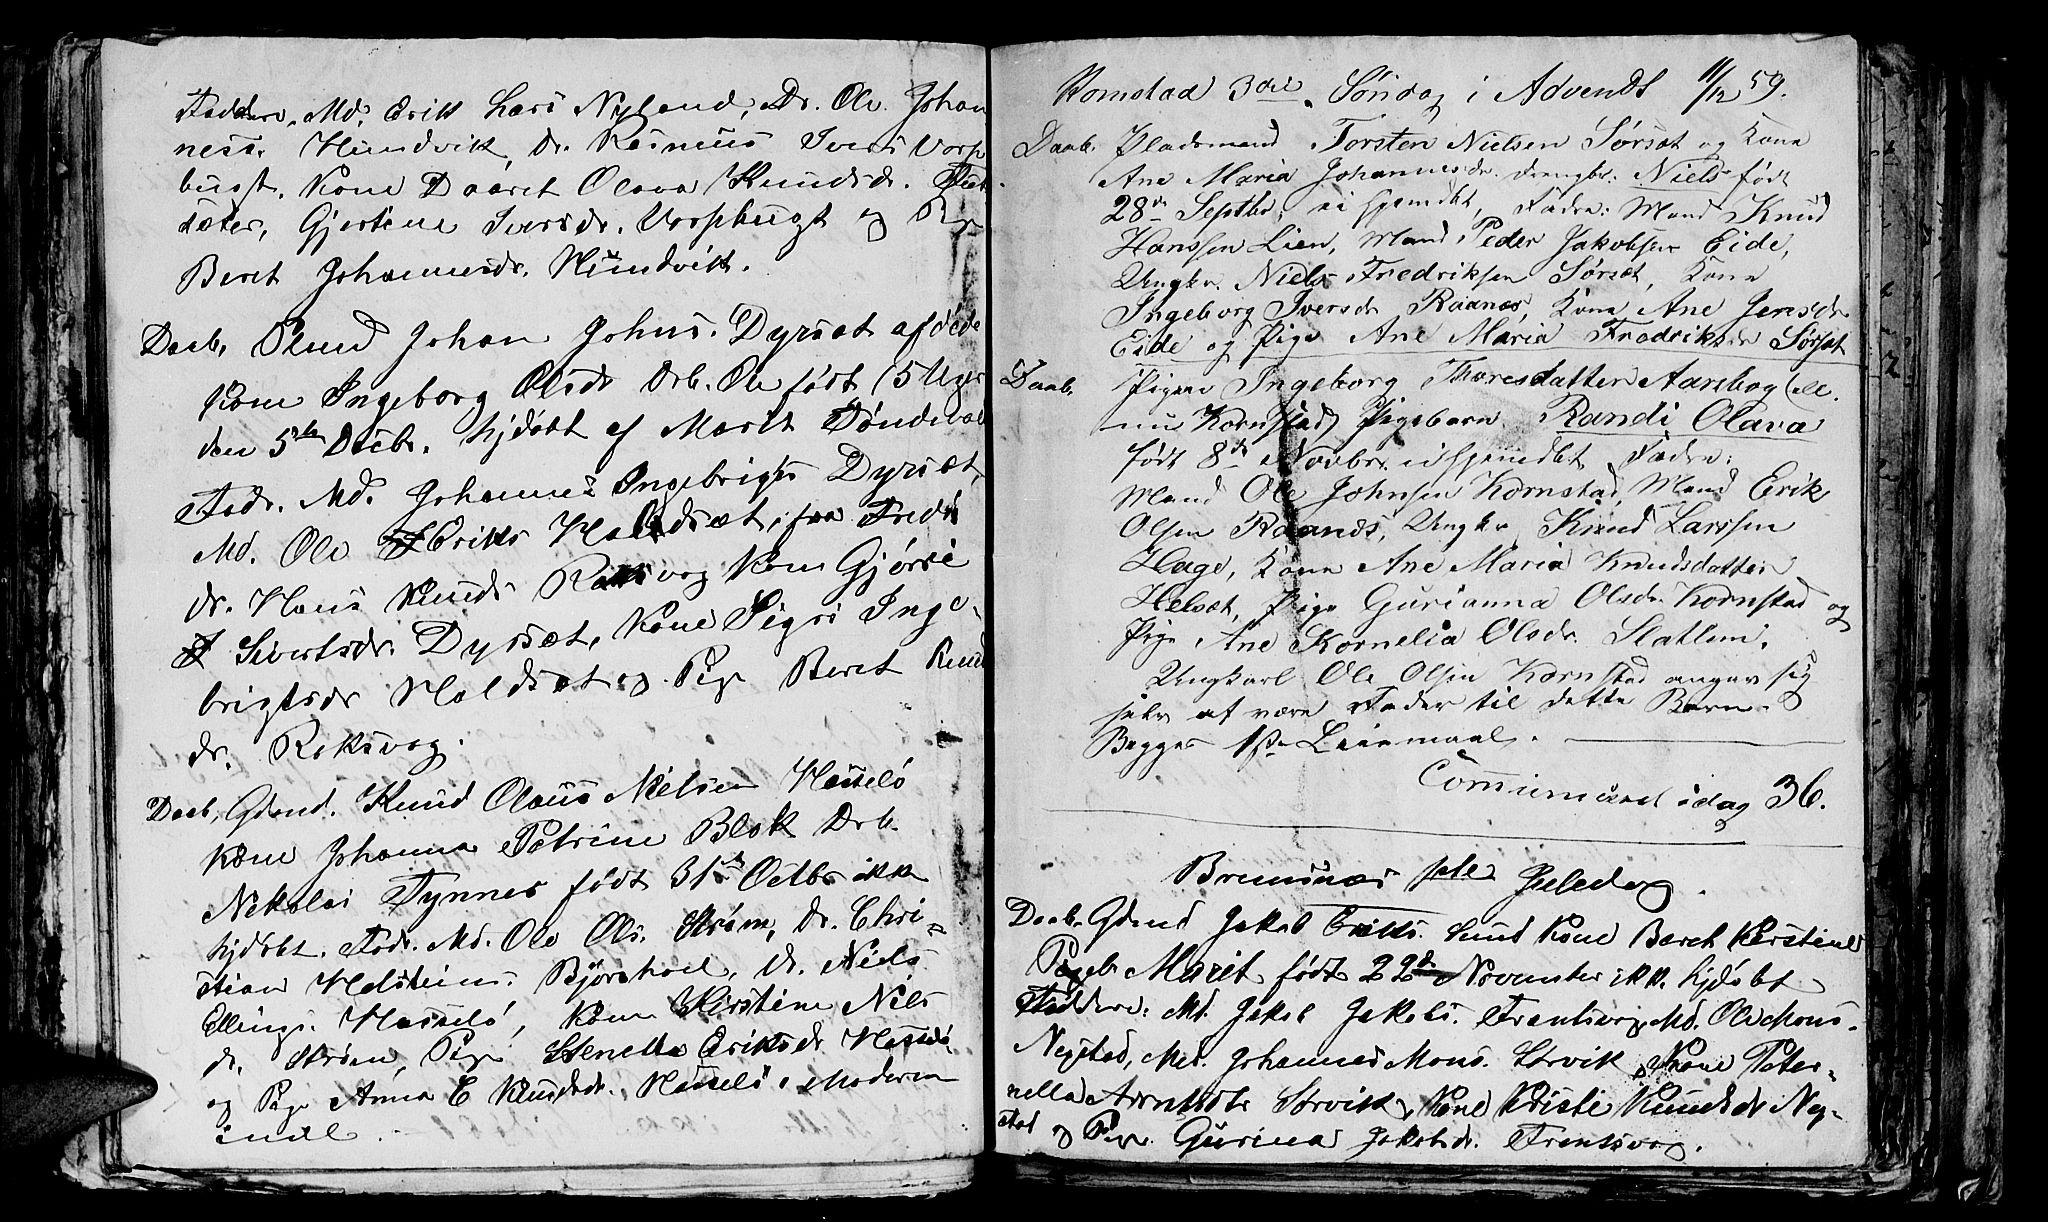 Faddere, Md. Erik Lars Nyland, Dr. Ole Johan
ness. Hundvik, Dr. Rasmus Ivers Vorp
bugt. Kone Daaret Olava Knudsdr.
sæter, Gjertine Iversdr. Vorpbugt og Pge
Beret Johannesdr. Hundvik.
Daab, Plmd Johan Johns. Dyrsæt afdøde
Kone Ingeborg Olsdr Drb. Ole født (5 Uger
den 5te Decbr. hjdøbt af Marit Tøndevold
Fadr. Md. Johannes Ingebrigts Dyrsæt,
Md. Ole Eriks Holdsæt, fra Fredø
dr. Hans Knuds Roksvog Kone Gjøri
Sivertsdr. Dyrsæt, Kone Sigri Inge-
brigtsdr Holdsæt og Pge Beret Knud
dr. Roksvog.
Daab, Gdmd. Knud Olaus Nielsen Hasselø
Kone Johanna Petrine Blok Drb.
Nikolai Tynnes født 31te Octbr ikk
hjdøbt. Fadr. Md. Ole Ols. Strøm, Dr. Chri-
stian Holsteins. Bjørshol, Dr. Niels
Ellings. Hasselø, Kone Kirstine Niels
dr. Strøm, Pge Stenella Eriksdr Hasselø
og Pge Anna E Knudsdr. Hasselø. Moderen
indl.
Kornstad 3die Søndag i Advendt 11/12 59.
Daab. Pladsmand Torsten Nielsen Sørsæt og Kone
Ane Maria Johannesdr. Drengbr: Niels født
28de Septbr, ei hjemdbt, Fadre: Mand Knud
Hanssen Lien, Mand Peder Jakobsen Eide,
Ungkr. Niels Fredriksen Sørsæt, Kone
Ingeborg Iversdr Raanæs, Kone Ane Jensdr
Eide og Pige Ane Maria Fredriksdr Sørsæt
Daab. Pigen Ingeborg Thoresdatter Aarsbog (ell.
nu Kornstad) Pigebarn Randi Olava
født 8de Novbr. ei hjemdbt Fadre:
Mand Ole Johnsen Kornstad, Mand Erik
Olsen Raanæs, Ungkr Knud Larssen
Hage, Kone Ane Maria Knudsdatter
Helsæt, Pige Gurianna Olsdr Kornstad og
Pige Ane Kornelia Olsdr. Slatlem.
Ungkarl Ole Olsen Kornstad angav sig
selv at være Fader til dette Barn.
Begges 1ste Leiermaal.
Communical. idag 36.
Bremsnes 1ste Juledag.
Daab. Gdmd Jakob Eriks. Sund Kone Beret Kirstine
Pigeb. Marit født 22de November ikk. hjdøbt
Faddere: Md. Jakob Jakobs. Frantsvog, Md. Ole Mons.
Negstad, Md. Johannes Mons. Sørvik, Kone Peter-
nella Arntsdr Sørvik, Kone Kristi Knudsdr Neg-
stad og Pige Gurina Jakobsdr. Frantsvog.